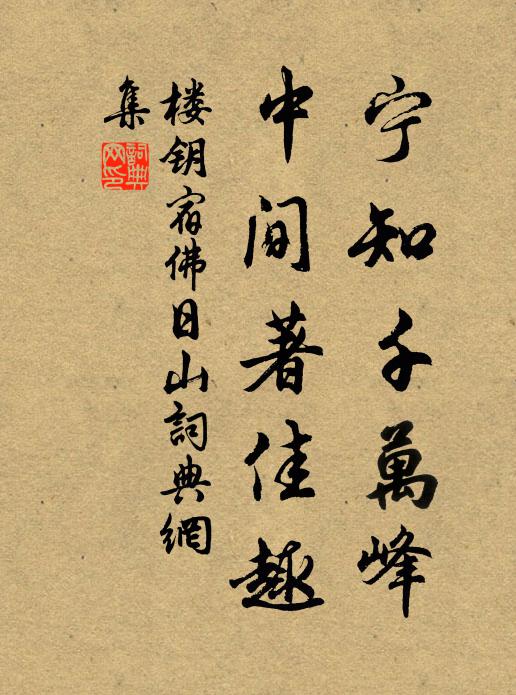 宁知千萬峰
中间著佳趣
楼钥宿佛日山詞典網
集
詞典網印